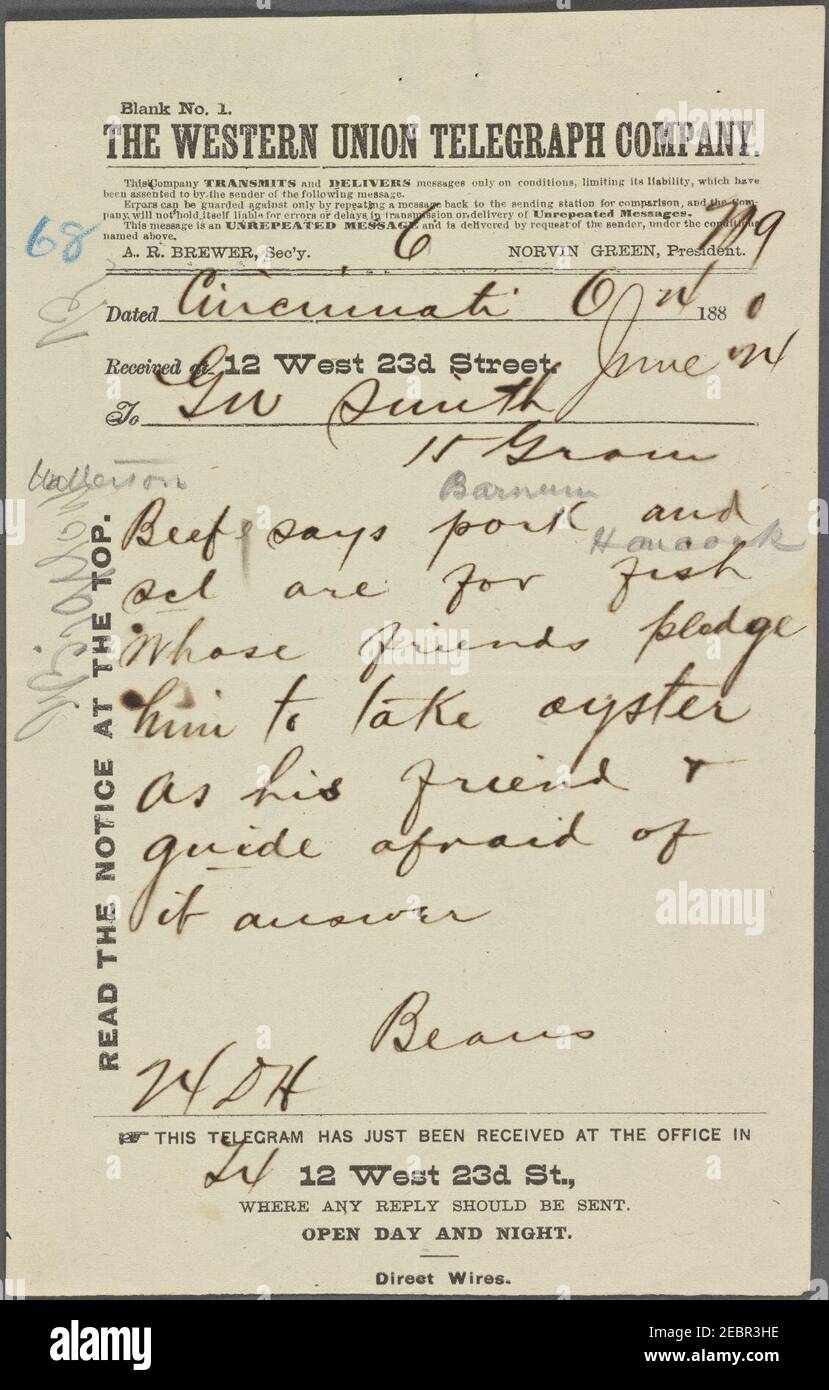 Blank No. 1.
THE WESTERN UNION TELEGRAPH COMPANY.
This Company TRANSMITS and DELIVERS messages only on conditions, limiting its liability, which have
been assented to by the sender of the following message.
Errors can be guarded against only by repeating a message back to the sending station for comparison, and the Com-
pany will not hold itself liable for errors or delays in transmission or delivery of Unrepeated Messages.
This message is an UNREPEATED MESSAGE and is delivered by request of the sender, under the conditions
named above.
68
A. R. BREWER, Sec'y. 6 NORVIN GREEN, President. 719
Dated Cincinnati O 24 1880
Received at 12 West 23d Street. June 24
To GW Smith
15 Gram
Watterson
Barnum
Beef says pork and
Hancock
sel are for fish
whose friends pledge
him to take oyster
as his friend &
guide afraid of
it answer
Beans
24 DH
READ THE NOTICE AT THE TOP.
THIS TELEGRAM HAS JUST BEEN RECEIVED AT THE OFFICE IN
12 West 23d St.,
WHERE ANY REPLY SHOULD BE SENT.
OPEN DAY AND NIGHT.
Direct Wires.
alamy
Image ID: 2EBR3HE
www.alamy.com